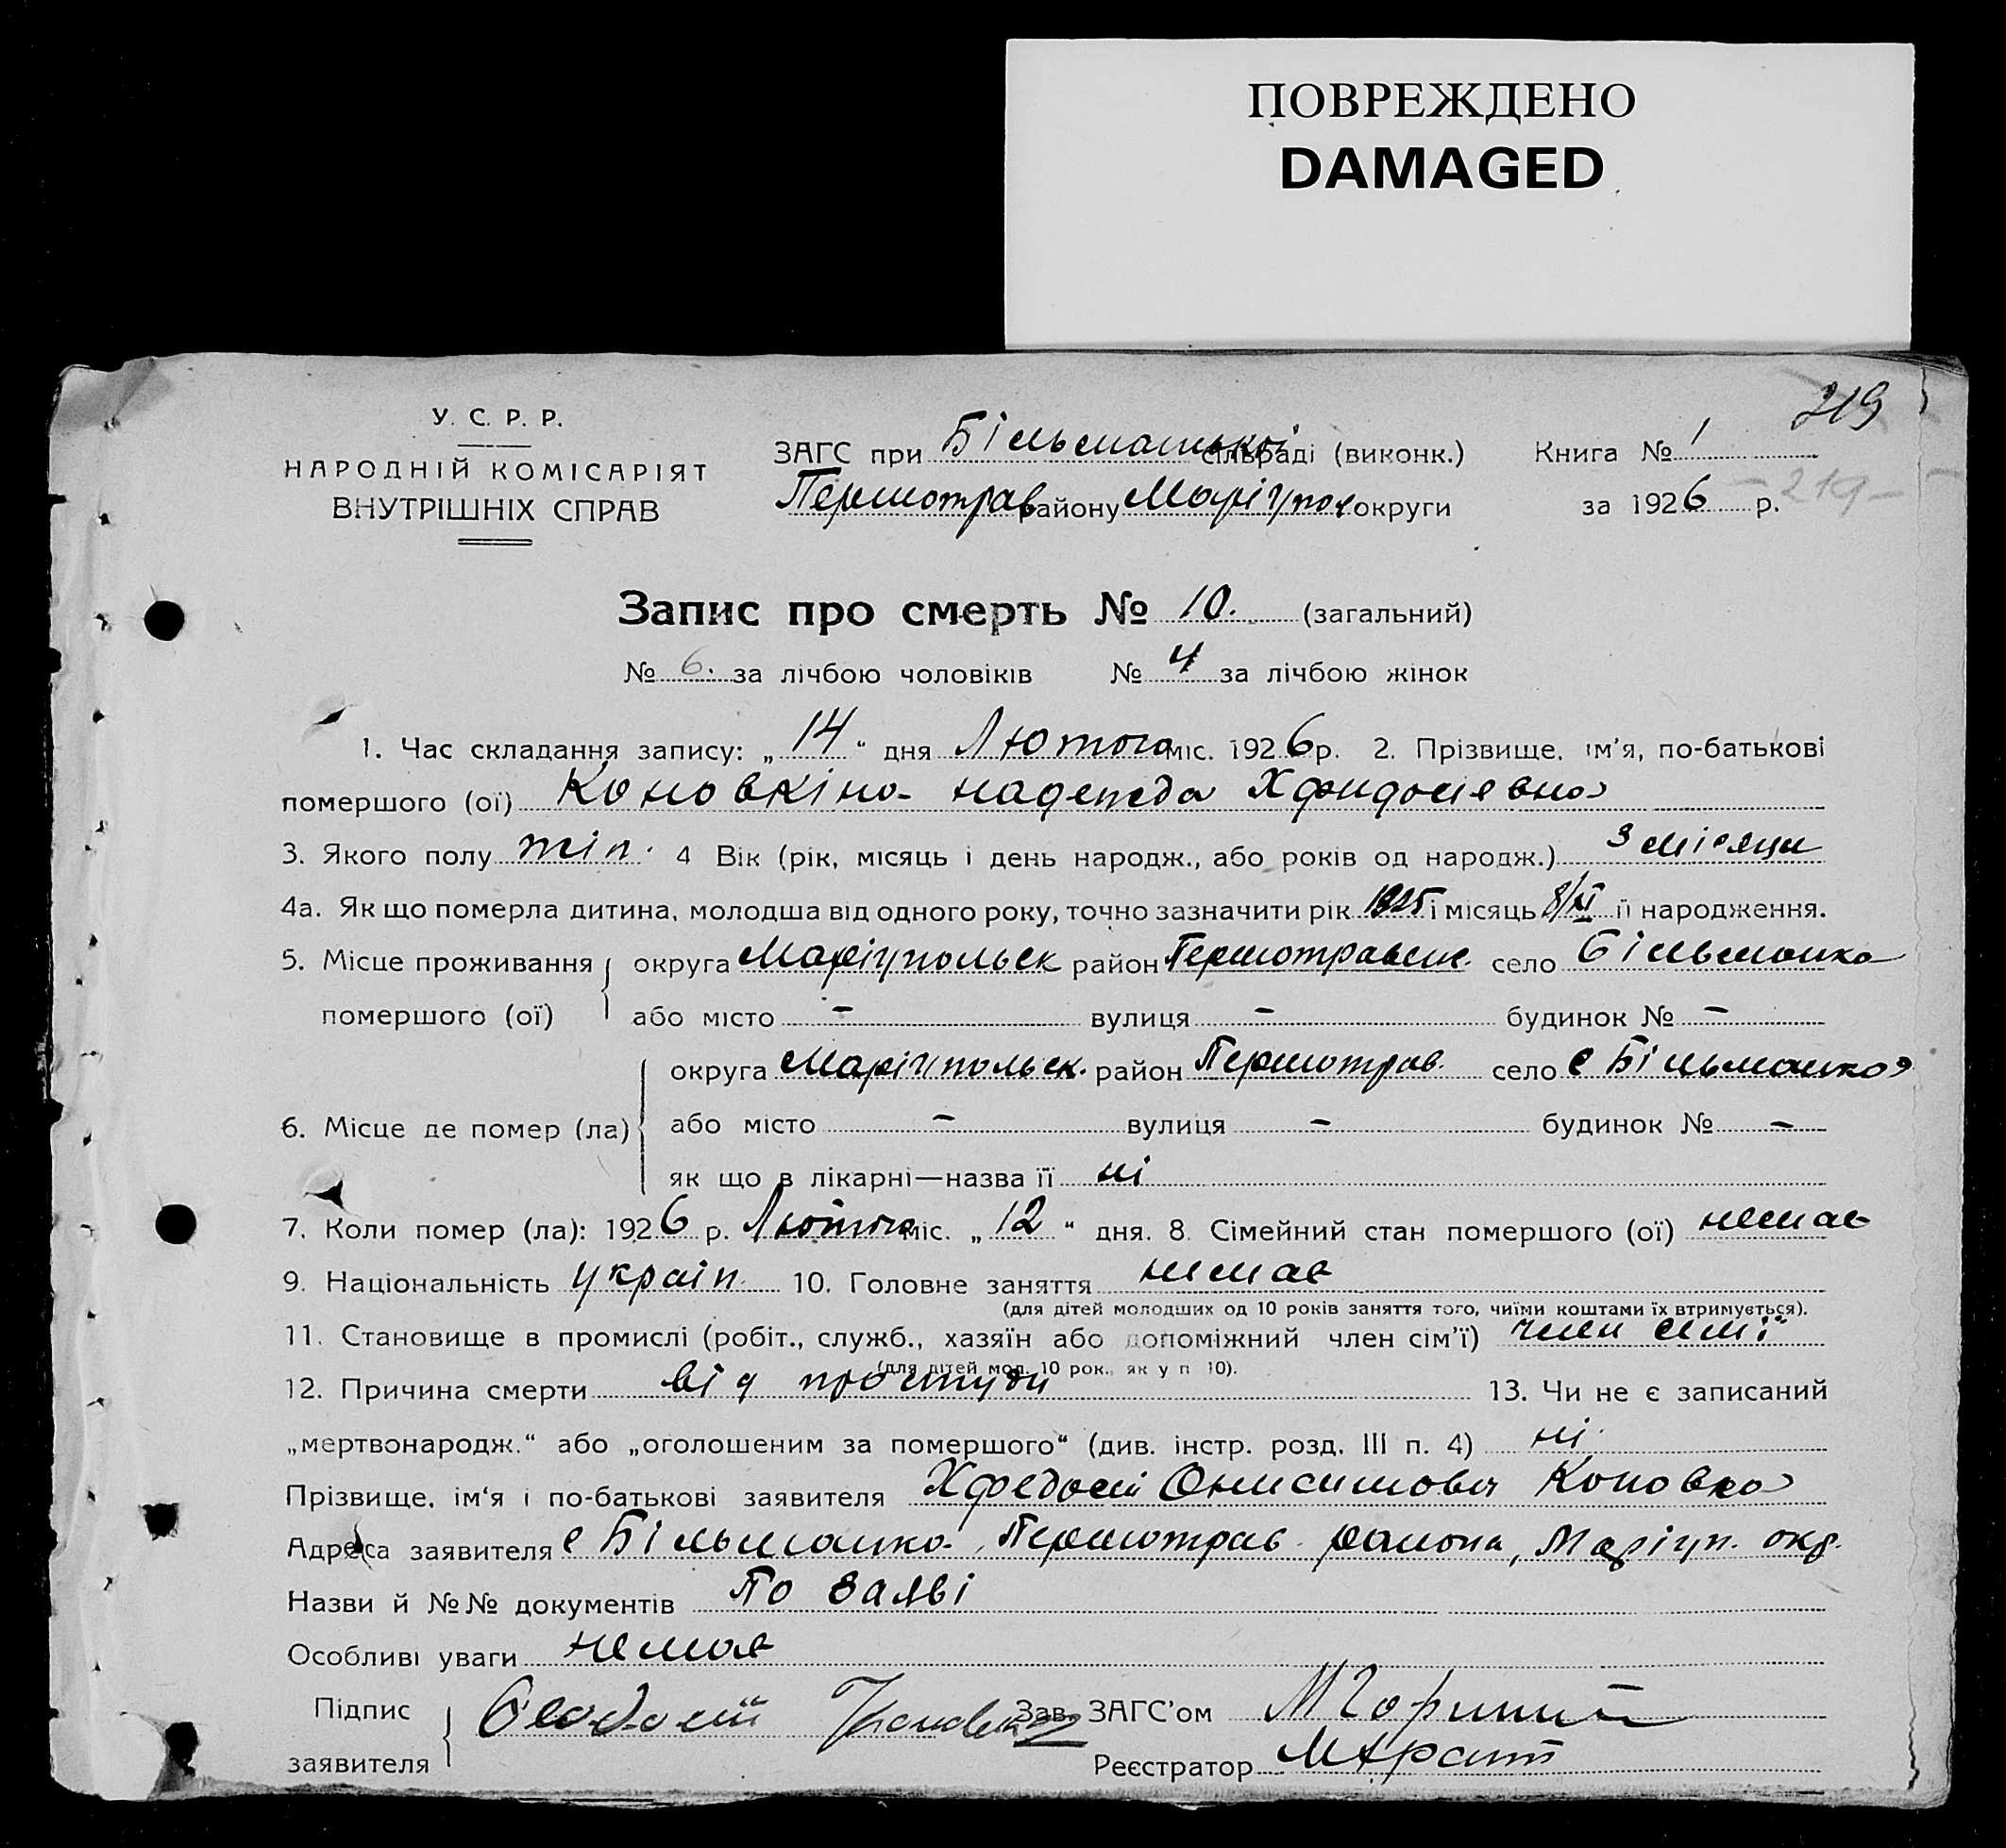 ПОВРЕЖДЕНО
DAMAGED
219
У. С. Р. Р.
НАРОДНІЙ КОМІСАРІЯТ
ВНУТРІШНІХ СПРАВ
ЗАГС при Більмацькой сільраді (виконк.)
Першотрав району Маріупол округи
Книга № 1
за 1926 р. -219-
Запис про смерть № 10. (загальний)
№ 6. за лічбою чоловіків № 4 за лічбою жінок
1. Час складання запису: „14“ дня Лютого міс. 1926 р. 2. Прізвище, ім’я, по-батькові
помершого (ої) Коновкіна Надежда Хфидосіевна
3. Якого полу жін. 4 Вік (рік, місяць і день народж., або років од народж.) 3 місяци
4а. Як що померла дитина, молодша від одного року, точно зазначити рік 1925 і місяць 8/XI її народження.
5. Місце проживання округа Маріупольськ район Першотравенс. село Більманка
помершого (ої) або місто – вулиця – будинок № –
округа Маріупольськ. район Першотрав. село с Більманка
6. Місце де помер (ла) або місто – вулиця – будинок № –
як що в лікарні—назва її ні
7. Коли помер (ла): 1926 р. Лютого міс. „12“ дня. 8. Сімейний стан помершого (ої) немає
9. Національність україн. 10. Головне заняття немає
(для дітей молодших од 10 років заняття того, чиїми коштами їх втримується).
11. Становище в промислі (робіт., служб., хазяїн або допоміжний член сім’ї) член сімї
(для дітей мол. 10 рок., як у п 10).
12. Причина смерти від простуди 13. Чи не є записаний
„мертвонародж.“ або „оголошеним за помершого“ (див. інстр. розд. III п. 4) ні.
Прізвище, ім‘я і по-батькові заявителя Хфедосій Онисимович Коновка
Адреса заявителя с Більманка, Першотрав. района, Маріуп. окр.
Назви й №№ документів По заяві
Особливі уваги немає
Підпис заявителя Феодосій Коновка Зав. ЗАГС’ом
Реєстратор